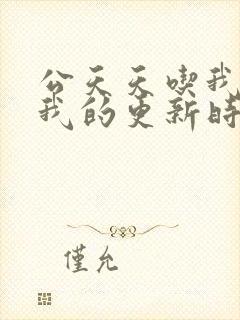 公天天喫我
我的更新時
僅允